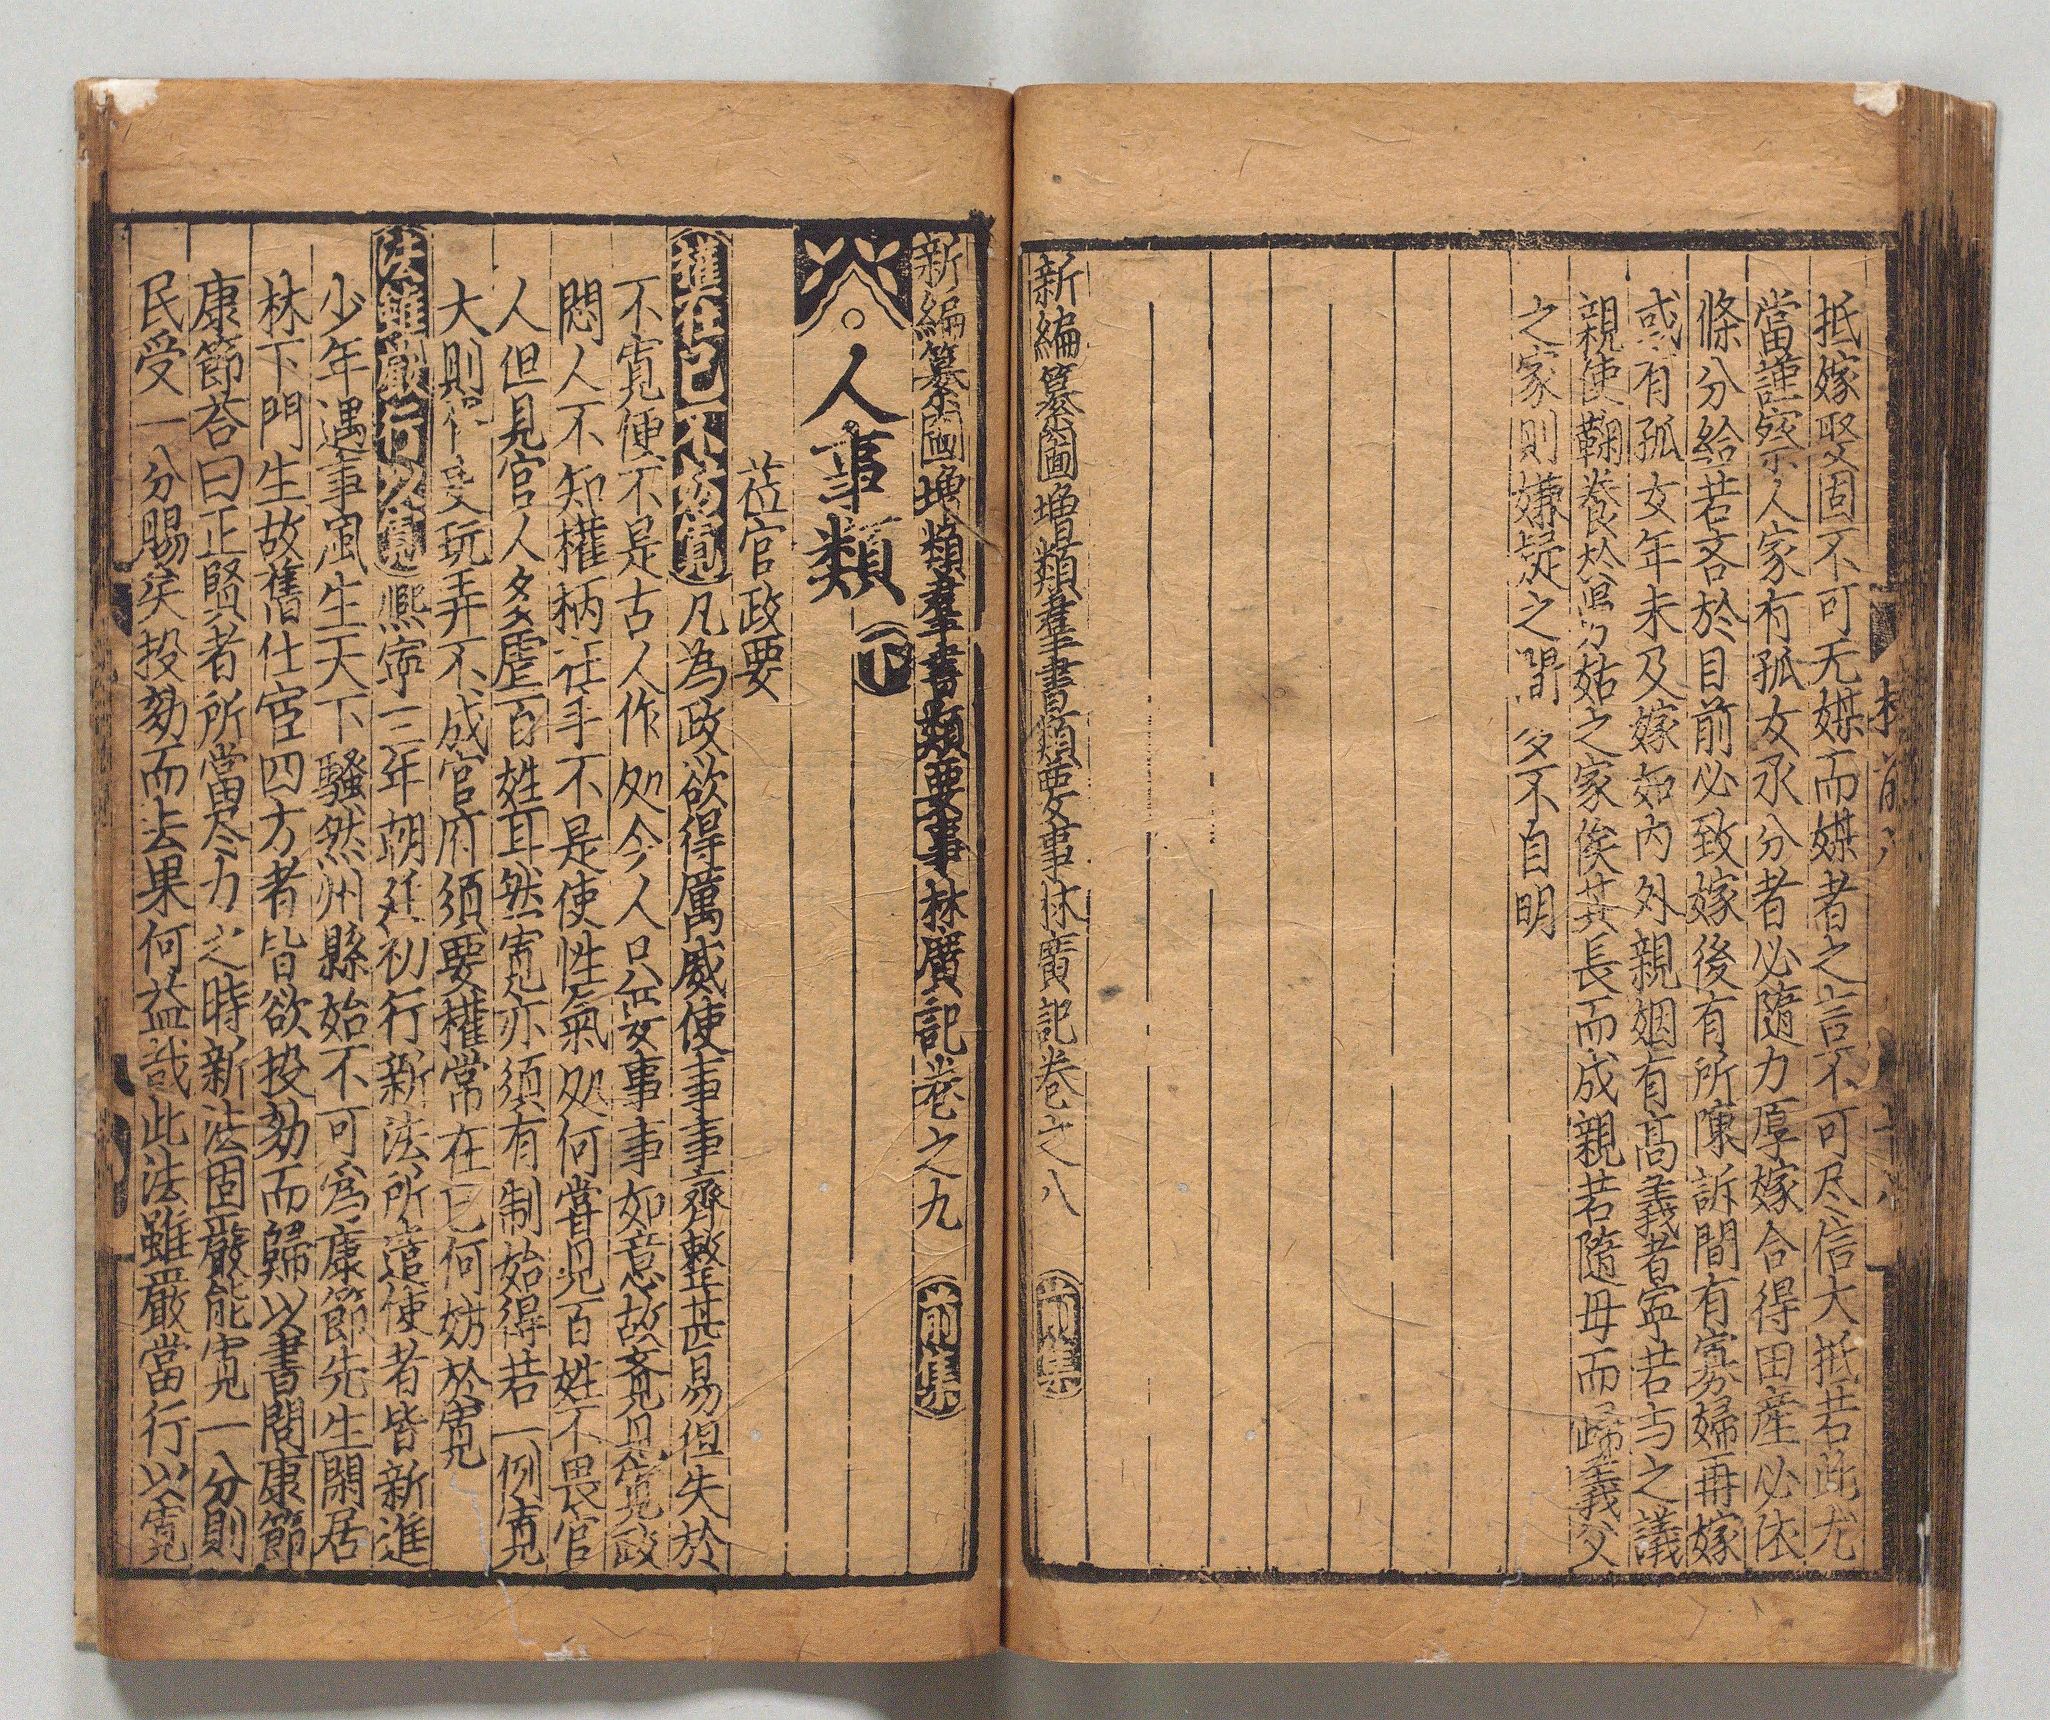 抵嫁娶固不可无媒而媒者之言不可尽信大抵若此尤
當謹察人家有孤女承分者必隨力厚嫁合得田産必依
條分給若吝於目前必致嫁後有所陳訴間有寡婦再嫁
或有孤女年未及嫁如內外親姻有髙義者寧若与之議
親使鞠養於舅姑之家俟其長而成親若隨母而歸義父
之家則嫌疑之間多不自明
新編纂圖増類羣書類要事林廣記卷之八 前集
新編纂圖増類羣書類要事林廣記卷之九 前集
人事類 下
莅官政要
權在己不妨寬 凡為政欲得厲威使事事齊整甚易但失於
不寬便不是古人作処今人只要事事如意故覺見寬政
悶人不知權柄在手不是使性氣処何嘗見百姓不畏官
人但見官人多虐百姓耳然寬亦須有制始得若一例寬
大則玩弄不成官府須要權常在己何妨於寬
法雖嚴行以寬 熙寧三年朝廷初行新法所遣使者皆新進
少年遇事風生天下騷然州縣始不可為康節先生閑居
林下門生故舊仕宦四方者皆欲投劾而歸以書問康節
康節荅曰正賢者所當尽力之時新法固嚴能寬一分則
民受一分賜矣投劾而去果何益哉此法雖嚴當行以寬